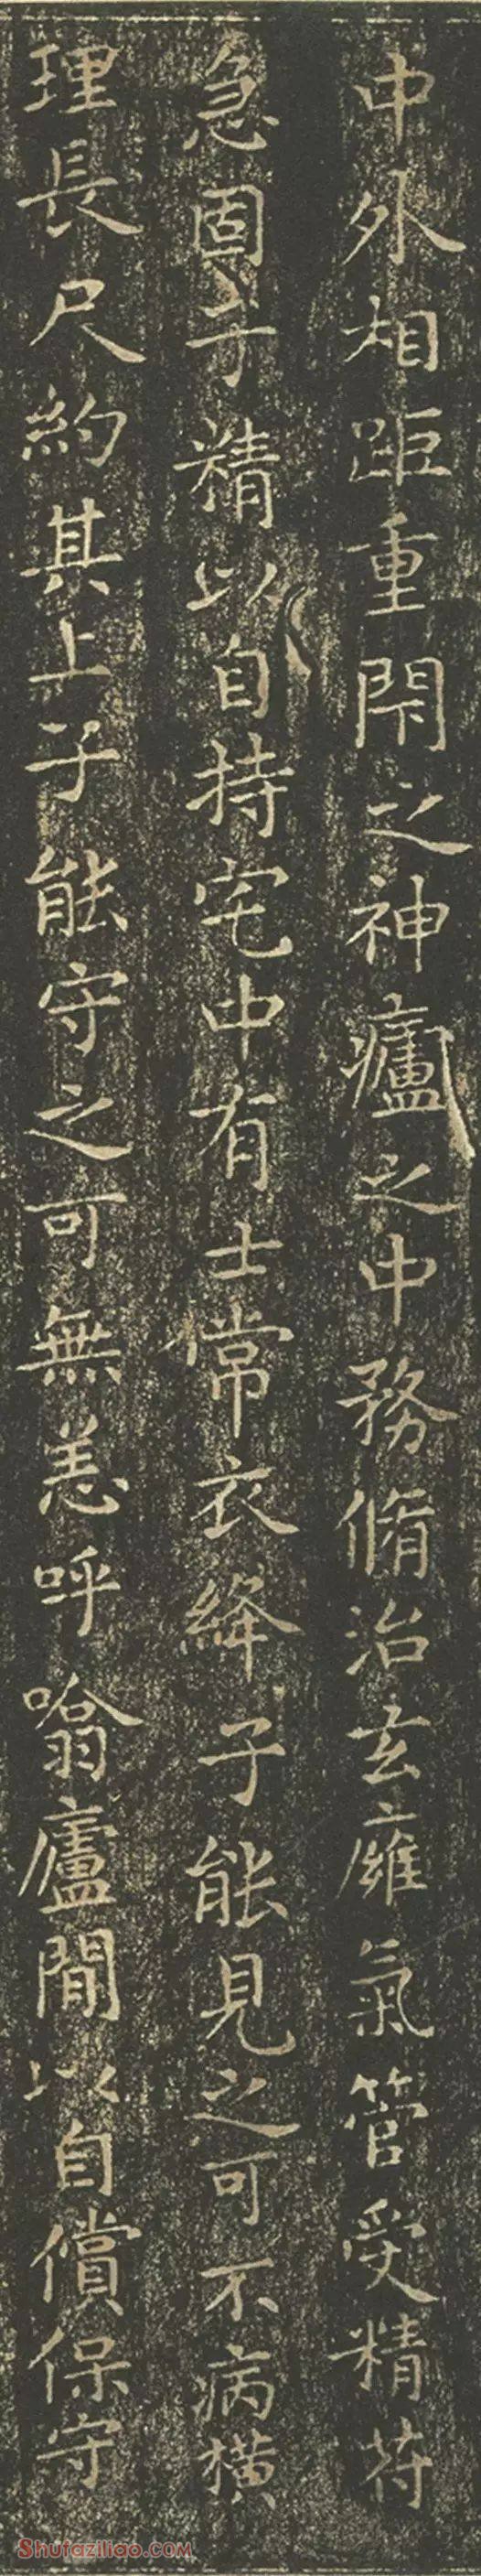 中外相距重閇之神廬之中務脩治玄廱氣管受精苻
急固子精以自持宅中有士常衣絳子能見之可不病橫
理長尺約其上子能守之可無恙呼噏廬閒以自償保守
Shufaziliao.com